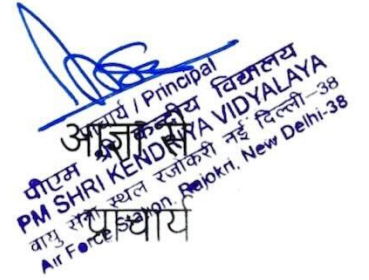 प्राचार्य / Principal
पीएम श्री केन्द्रीय विद्यालय
PM SHRI KENDRIYA VIDYALAYA
वायु सेना स्थल रजोकरी नई दिल्ली-38
Air Force Station, Rajokri, New Delhi-38
आज्ञा से
प्राचार्य